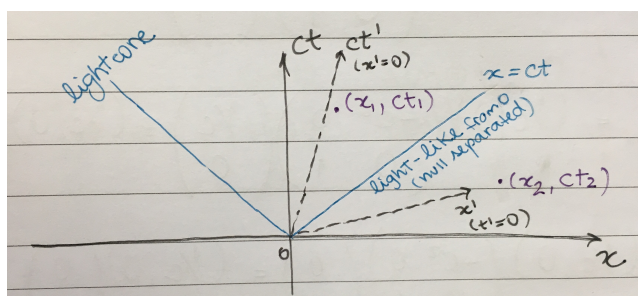 lightcone
ct
ct'
(x'=0)
x=ct
(x₁, ct₁)
light-like from 0
(null separated)
(x₂, ct₂)
x'
(t'=0)
0
x